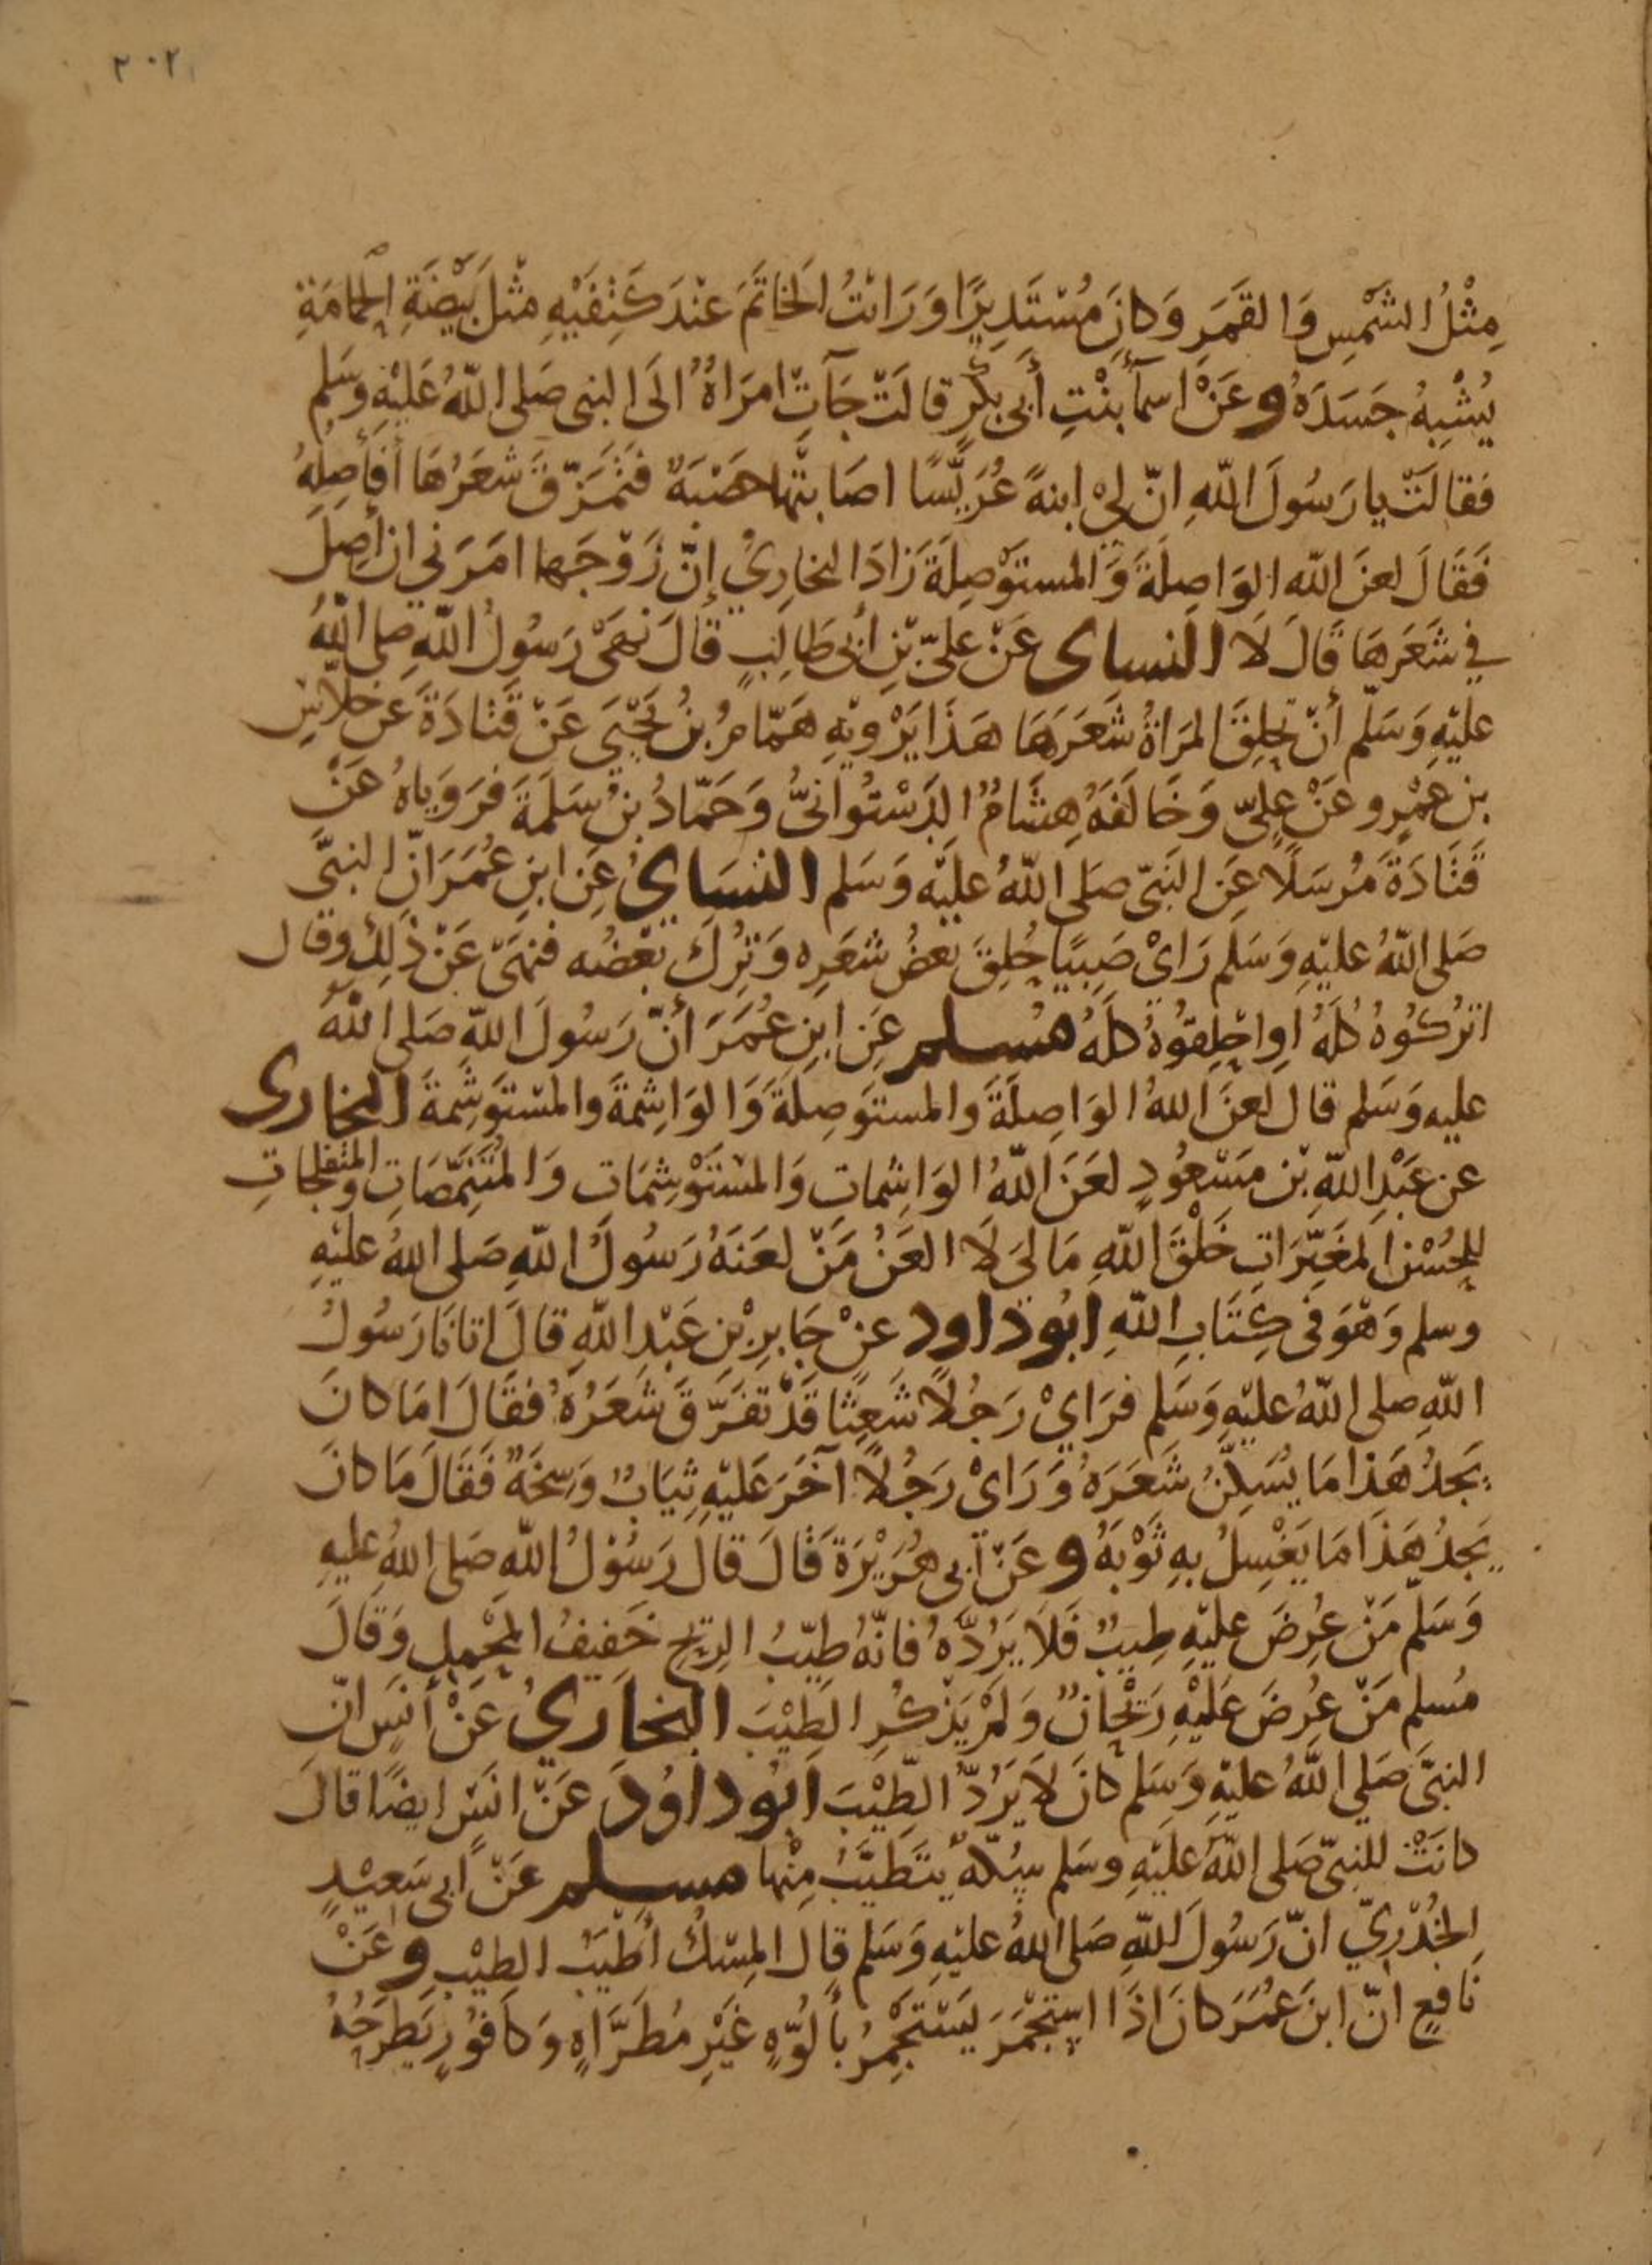 ٢٠٢
مِثْلُ الشَّمْسِ وَالقَمَرِ وَكَانَ مُسْتَدِيرًا وَرَاَيتُ الخَاتَمَ عِنْدَ كَتِفَيْهِ مِثْلَ بَيْضَةِ الحمَامَةِ
يُشْبِهُ جَسَدَهُ وعَنْ اسمآ بنْتِ أَبى بكْرٍ قالَتْ جَآتْ امرَاةٌ الَى النبى صَلى اللّهُ عَلَيْهِ وسَلم
فقالَتْ يا رَسُولَ اللّهِ انّ لِىْ ابنةً عُرَيِّسًا اصَابتَها حَصْبَةٌ فَتمَزّقَ شَعَرُهَا أَفَأَصِلُهُ
فَقَالَ لعنَ اللّه الوَاصِلَةَ وَالمستَوْصِلَةَ زَادَ البخارِيُ إنّ زَوْجَها امَرَني ان أَصِلَ
في شَعَرِهَا قَالَ لَا النساى عَنْ علىّ بْنِ أبى طَالِبٍ قالَ نَهَى رَسُولُ اللّهِ صلى اللّهُ
عليْهِ وَسَلّم أنْ تحلِقَ المرَاةُ شَعَرَهَا هَذَا يَرْوِيْهِ هَمّامُ بنُ يَحْيَى عَنْ قَتَادَةَ عَن خِلاسِ
بن عمْرٍو عَنْ علىّ وَخَالَفَهُ هِشَامٌ الدَسْتُوَانىُّ وَحَمّادُ بنُ سَلَمَةَ فرَوَيَاهُ عَنْ
قَتَادَةَ مُرْسَلًا عَن النَبىّ صَلى اللّهُ عليْه وَسَلم النسَايُ عَن ابنِ عُمَرَ انّ النبىَّ
صَلى اللّهُ عليْهِ وَسَلم رَاىْ صَبِيًا حُلِقَ بَعضُ شَعَرِه وَتُرِكَ بَعْضُه فنهَى عَنْ ذَلِكَ وقال
اتْرُكُوهُ كُلَهُ اوِ احْلِقوُهُ كلَهُ مُسلم عَن ابنِ عُمَرَ أنّ رَسُولَ اللّهِ صَلى اللّهُ
عليه وَسَلم قال لعَنَ اللّهُ الوَاصِلَةَ والمستَوصِلَةَ وَالوَاشِمةَ والمسْتَوشِمةَ البخارى
عن عَبْدِ اللّهِ بْن مَسْعُودٍ لعَنَ اللّهُ الوَاشِماتِ وَالمسْتَوْشِمَات وَالمُتنَمِّصَاتِ وَالمتفلجَاتِ
للحُسْنِ المغَيِّرَاتِ خَلْقَ اللّهِ مَا لِىَ لَا العَنُ مَنْ لعَنَهُ رَسُولُ اللّهِ صَلى اللّهُ عليْهِ
وسلم وَهْوَ فى كِتَابِ اللّهِ ابُوداود عنْ جَابِرِ بْنِ عَبْدِ اللّهِ قالَ اتانَا رَسُولُ
اللّهِ صلى اللّهُ عليْهِ وَسَلم فرَايْ رَجُلًا شَعِثًا قَدْ تفَرّقَ شَعَرُهُ فقَالَ امَا كانَ
يَجدُ هَذا مَا يُسَكِنُ شَعَرَهُ وَرَاىْ رَجُلًا آخَرَ عَليْهِ ثِيَابٌ وَسِخَةٌ فَقَالَ مَا كانَ
يَجدُ هَذَا مَا يَغْسِلُ بهِ ثَوْبَهُ وعَنْ أبى هُرَيْرَةَ قَالَ قالَ رَسُوْلُ اللّهِ صَلى اللّهُ عليهِ
وَسَلّم مَنْ عِرُضَ عليْهِ طِيبٌ فَلَا يَرُدَّهُ فانّهُ طيّبُ الرِيحِ خَفِيفُ المحْمِلِ وَقَالَ
مُسلم مَنْ عُرِضَ عَليْهِ رَيْحانٌ وَلمْ يَذْكُرِ الطِيْبَ البخَارِيُ عَنْ أَنَسٍ انّ
النبىَّ صَلي اللّهُ عليْهِ وَسَلم كانَ لَا يَرُدّ الطِيْبَ ابُوداوُدَ عَنْ انَسٍ ايضًا قالَ
كانَتْ للنبىّ صَلى اللّهُ عَليْهِ وسَلم سُكّةٌ يتَطَيَّبُ مِنْها مسلم عَنْ ابى سَعِيْدٍ
الخُدْرِيّ انّ رَسُولَ اللّهِ صَلى اللّهُ عليْهِ وَسَلم قال المِسْكُ أطْيَبُ الطِيْبِ وعَنْ
نَافِعٍ انّ ابنَ عمُرَ كانَ اذَا استَجْمَرَ يَسْتَجْمِرُ بأَلُوّةٍ غَيْرِ مُطَرَّاهٍ وَكَافُوْرٍ يَطرَحُهُ